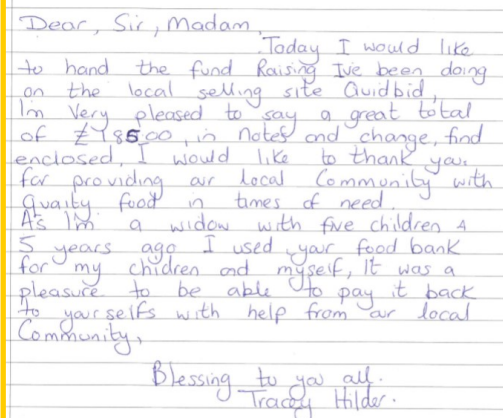 Dear, Sir, Madam,
Today I would like
to hand the fund Raising Ive been doing
on the local selling site Quidbid,
Im Very pleased to say a great total
of £785.00, in notes and change, find
enclosed, I would like to thank you.
for providing our local Community with
Quaity food in times of need.
As Im a widow with five children &
5 years ago I used your food bank
for my chidren and myself, It was a
pleasure to be able to pay it back
to your selfs with help from our local
Community,
Blessing to you all.
Tracey Hilder.